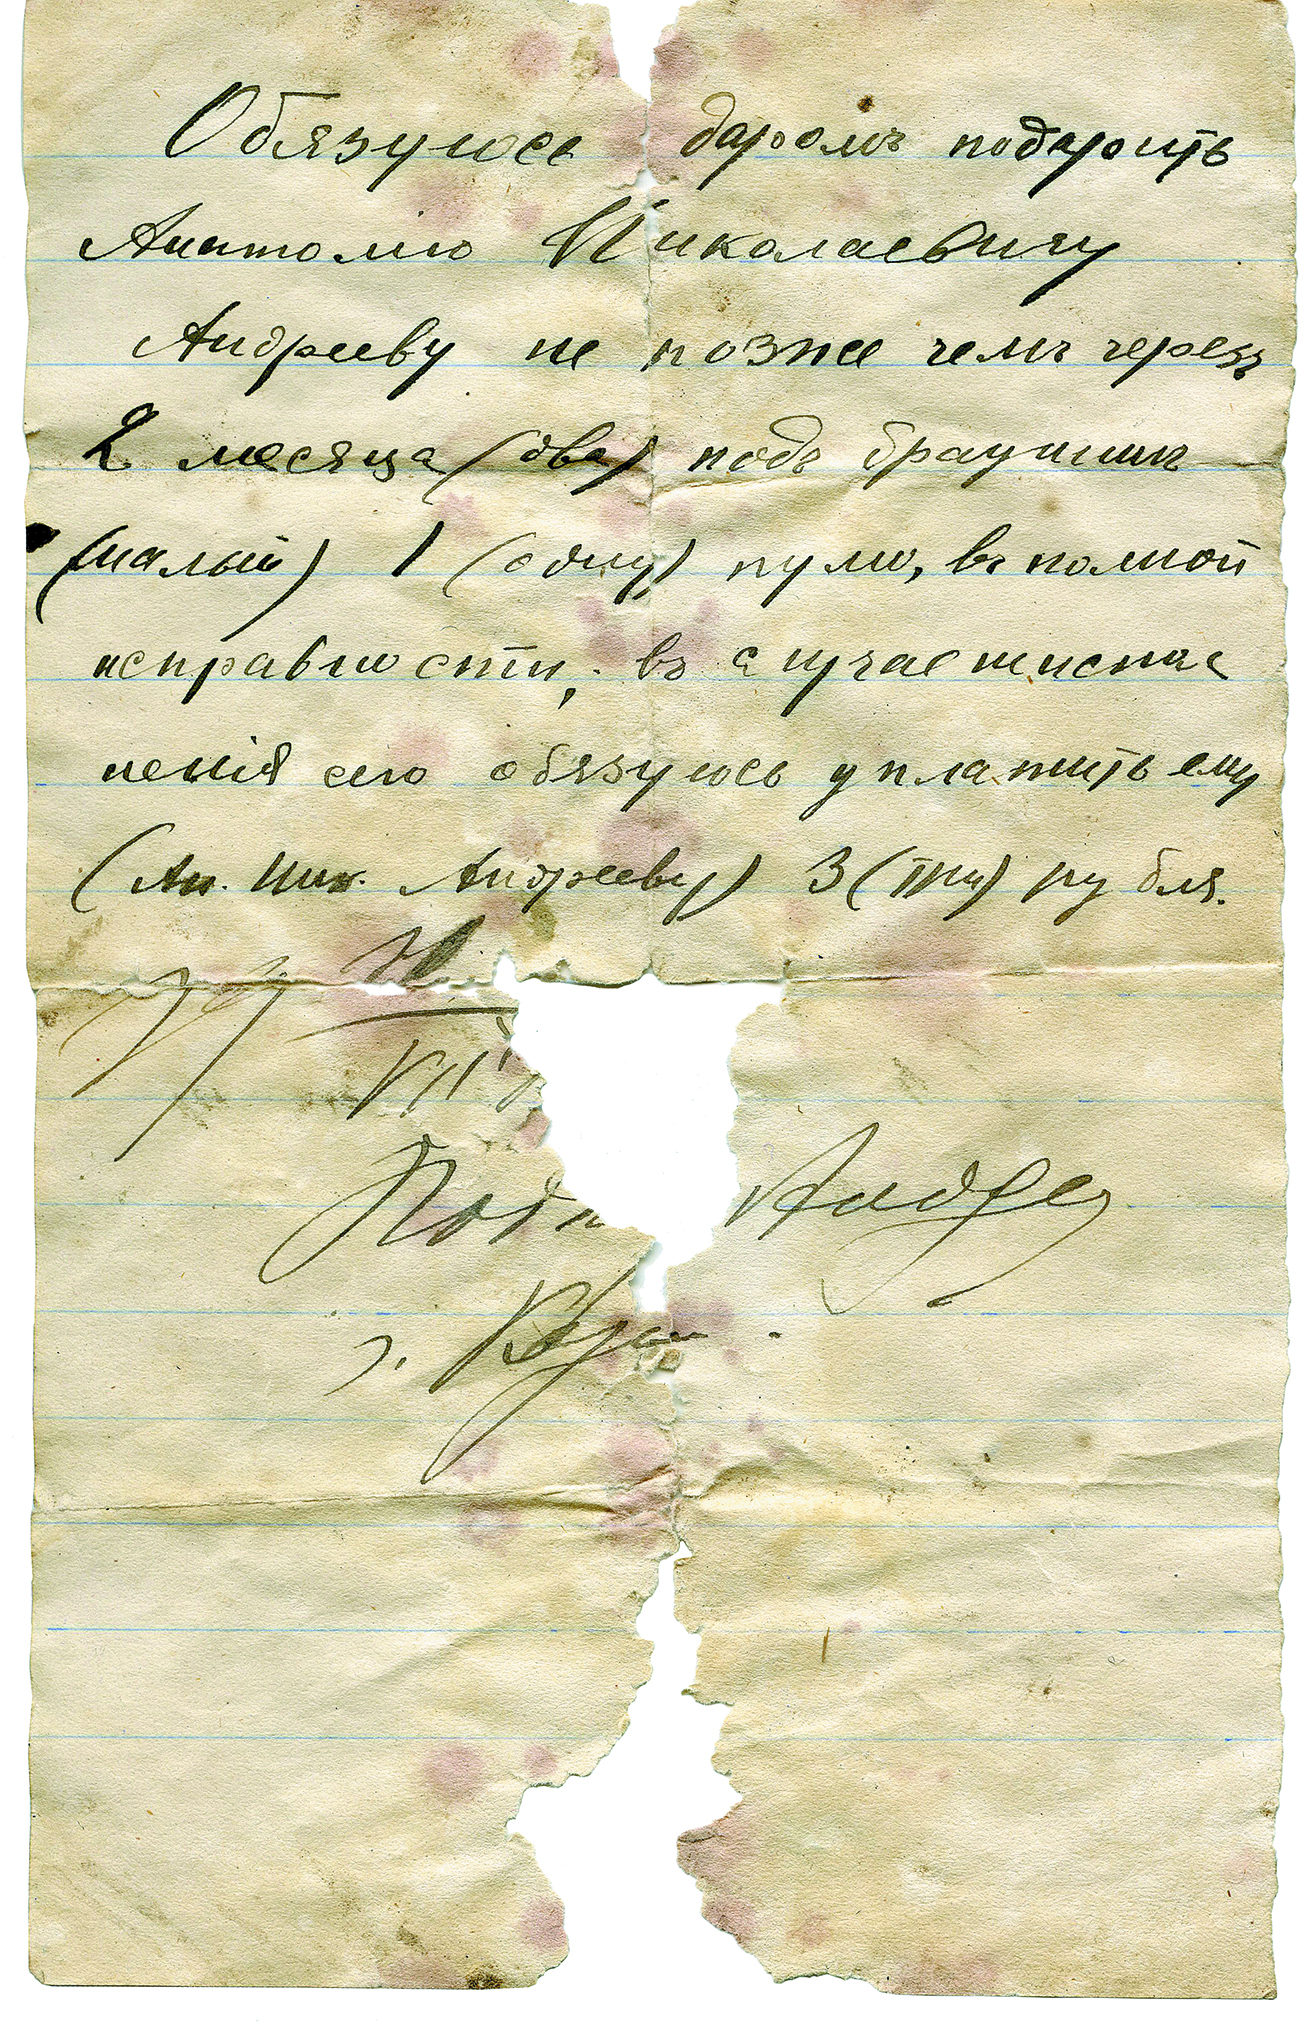 Обязуюсь даромъ подарить
Анатолію Николаевичу
Андрееву не позже чемъ черезъ
2 месяца (два) подъ браунингъ
(малый) 1 (одну) пулю, въ полной
исправности, въ случае неиспол
ненія сего обязуюсь уплатить ему
(Ан. Ник. Андрееву) 3 (три) рубля.
VII
Андре
г.